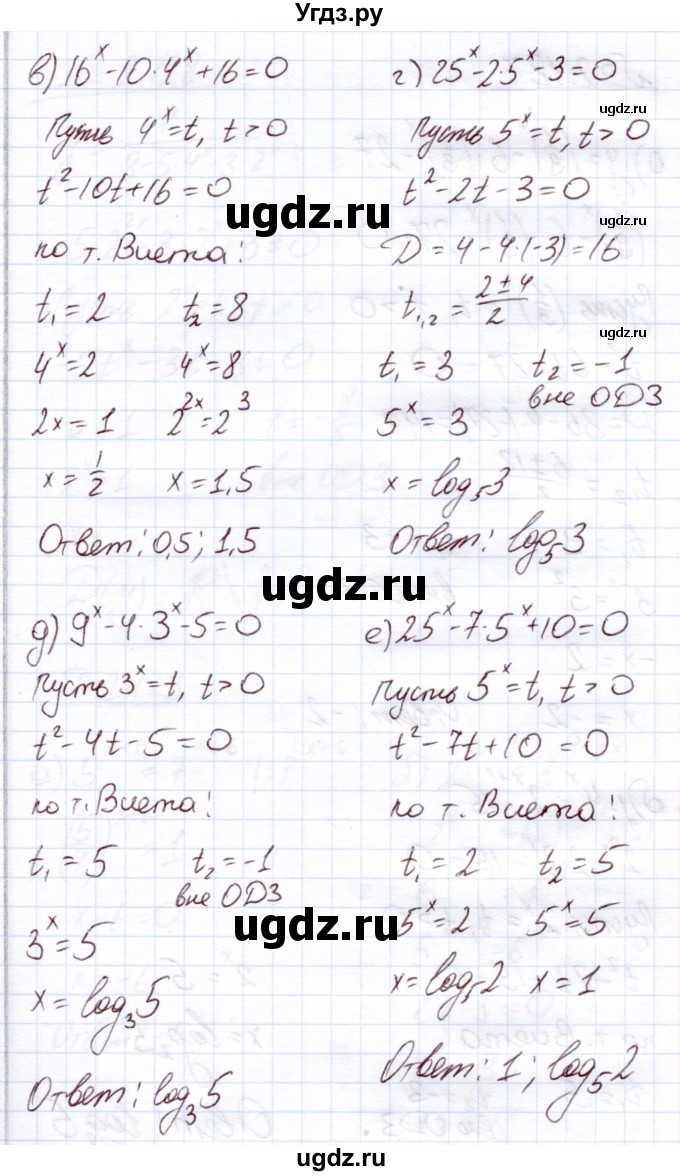 Угдз.ру
в) 16^x - 10·4^x + 16 = 0
Пусть 4^x = t, t > 0
t² - 10t + 16 = 0
по т. Виета:
t₁ = 2 t₂ = 8
4^x = 2 4^x = 8
2x = 1 2^2x = 2^3
x = 1/2 x = 1,5
Ответ: 0,5; 1,5
г) 25^x - 2·5^x - 3 = 0
Пусть 5^x = t, t > 0
t² - 2t - 3 = 0
D = 4 - 4·(-3) = 16
t₁,₂ = (2 ± 4)/2
t₁ = 3 t₂ = -1
вне ОДЗ
5^x = 3
x = log₅3
Ответ: log₅3
д) 9^x - 4·3^x - 5 = 0
Пусть 3^x = t, t > 0
t² - 4t - 5 = 0
по т. Виета:
t₁ = 5 t₂ = -1
вне ОДЗ
3^x = 5
x = log₃5
Ответ: log₃5
е) 25^x - 7·5^x + 10 = 0
Пусть 5^x = t, t > 0
t² - 7t + 10 = 0
по т. Виета:
t₁ = 2 t₂ = 5
5^x = 2 5^x = 5
x = log₅2 x = 1
Ответ: 1; log₅2
ugdz.ru
ugdz.ru
ugdz.ru
ugdz.ru
ugdz.ru
ugdz.ru
ugdz.ru
ugdz.ru
ugdz.ru
ugdz.ru
ugdz.ru